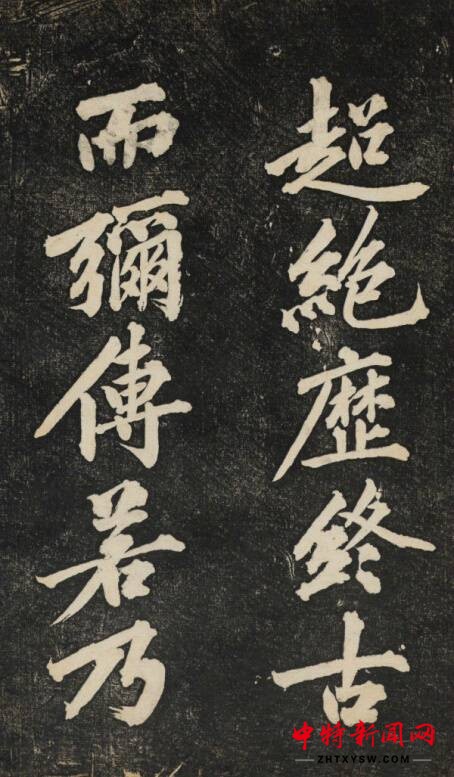 超絶歷終古
而彌傳若乃
中特新闻网
ZHTXYSW.COM